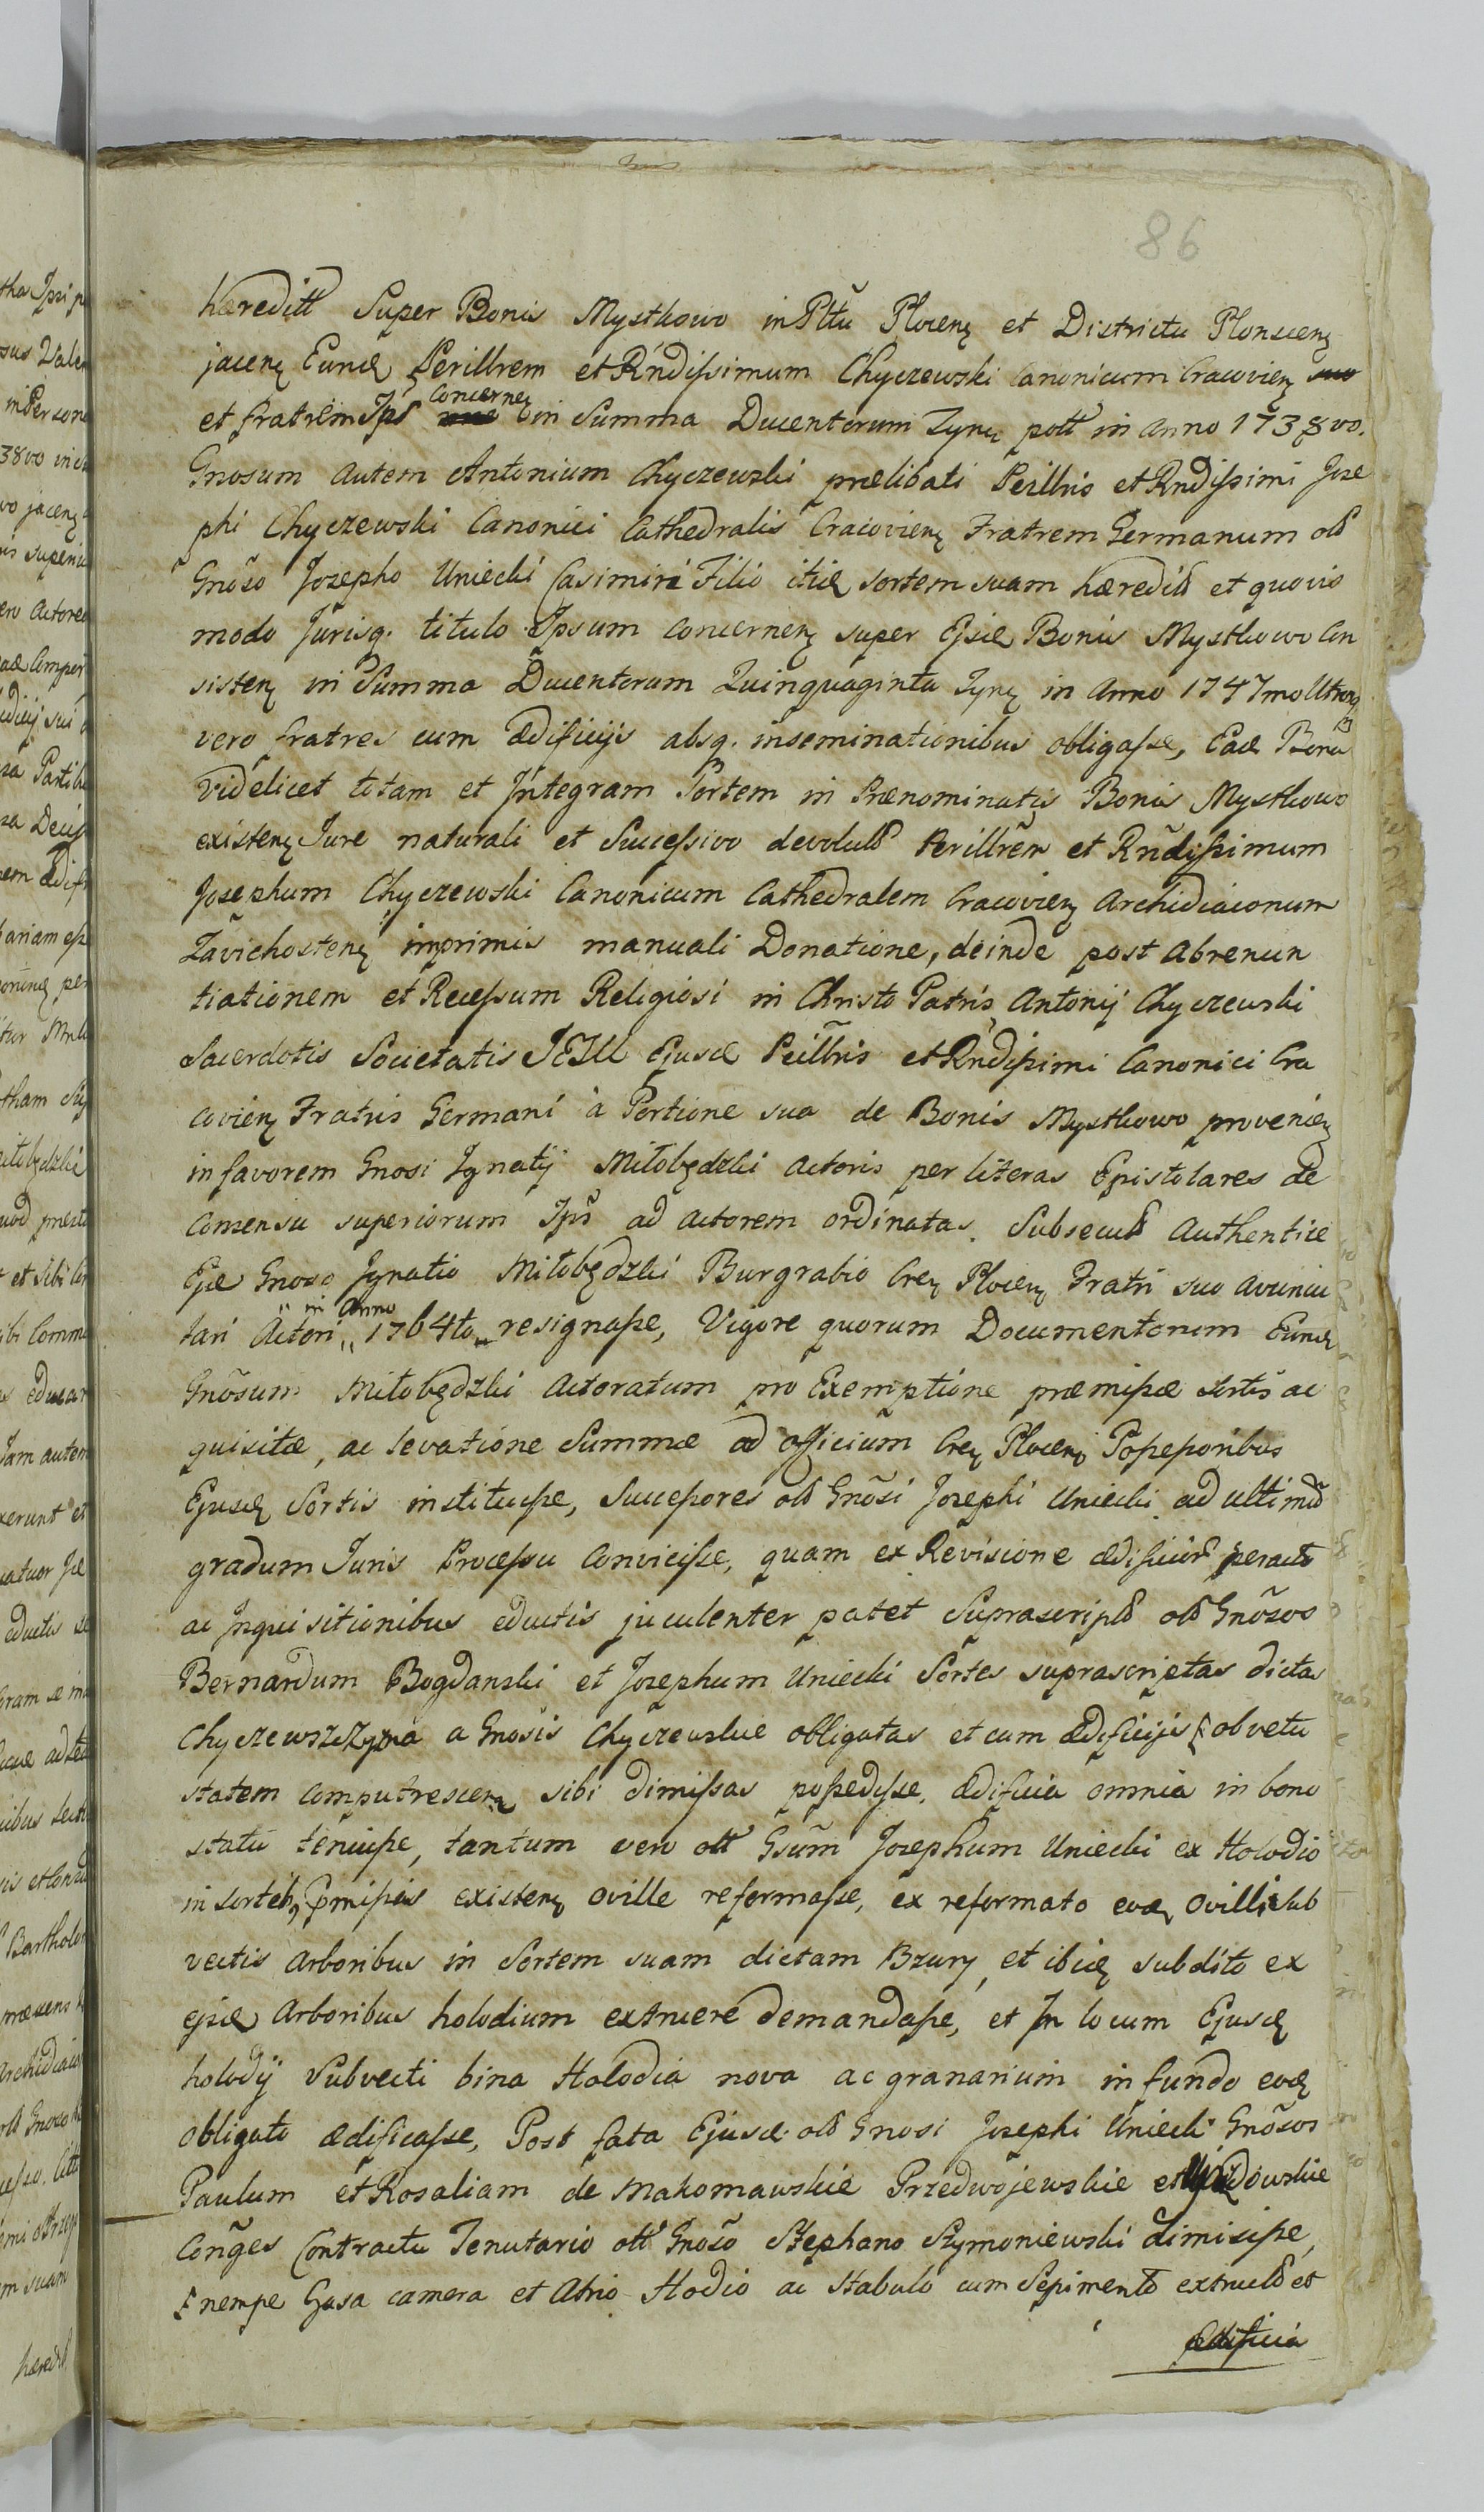 86
hæreditt Super Bonis Mysthowo in Pttu Plocenę et Districtu Plonscenę
jacenę Eundę Perillrem et Rndissimum Chyczewski Canonicum Cracovienę
et fratrem Ips Concernę in Summa Ducentorum Zynę pott in Anno 1738vo.
Gnosum autem Antonium Chyczewski prælibati Perillris et Rndissimi Jose
phi Chyczewski Canonici Cathedralis Cracovienę Fratrem Germanum olĩ
Gnõso Josepho Uniecki Casimiri Filio itidę sortem suam hæredið et quovis
modo Jurisq. titulo Ipsum concernenę super Ejsdę Bonis Mysthowo Con
sistenę in Summa Ducentorum Quinquaginta Zynę in Anno 1747mo Utrosq
vero fratres cum ædificijs absq. inseminationibus obligasse, Eadę Bona
videlicet totam et Integram Sortem in Prænominatis Bonis Mysthowo
existenę Jure naturali et Successivo devolutð Perillrẽm et Rñdissimum
Josephum Chyczewski Canonicum Cathedralem Cracovienę Archidiaconum
Zavichostenę imprimis manuali Donatione, deinde post abrenun
tiationem et Recessum Religiosi in Christo Patris Antonij Chyczewski
Sacerdotis Societatis JESU Ejusdę Peillris et Rndissimi Canonici Cra
covienę Fratris Germani à Portione sua de Bonis Mysthowo provenienę
in favorem Gnosi Ignatij Miłobędzki Actoris per literas Epistolares de
Consensu superiorum Ips ad actorem ordinatas. Subsecutð Authentice
Ejdę Gnoso Ignatio Miłobędzki Burgrabio Crenę Plocenę Fratri suo avuncu
lari Actori in Anno 1764to resignasse, Vigore quorum Documentorum Eundę
Gnõsum Miłobędzki Actoratum pro Exemptione præmissæ sortis ac
quisitæ, ac levatione Summæ ad officium Crenę Plocenę Possessoribus
Ejusdę Sortis instituisse, Successores olð Gnõsi Josephi Uniecki ad ultimũ
gradum Juris Processu convicisse, quam ex Revisione ædificiorð peracto
ac Inquisitionibus eductis juculenter patet Suprascriptð olð Gnõsos
Bernardum Bogdanski et Josephum Uniecki Sortes suprascriptas dictas
Chyczewszczyzna a Gnosis Chyczewskie obligatas et cum ædificijs ob vetu
statem computrescenę sibi dimissas possedisse, ædificia omnia in bono
statu tenuisse, tantum vero ott Gsũm Josephum Uniecki ex Holodio
in sorteb, pmissis existenę oville reformasse, ex reformato eodę ovilli sub
vectis Arboribus in Sortem suam dictam Bzury, et ibidę subdito ex
ejsdę Arboribus holodium extruere demandasse, et In locum Ejusdę
holodij Subvecti bina Holodia nova ac granarium in fundo eodę
obligato ædificasse, Post fata Ejusdę olð Gnosi Josephi Uniecki Gnõsos
Paulum et Rosaliam de Makomawskie Przedwojewskie
Conges Contractu Tenutario ott Gnoso Stephano Szymoniewski dimisisse,
nempe Gasa camera et Atrio Hodio ac Stabulo cum Sepimento extructð et
ædificia